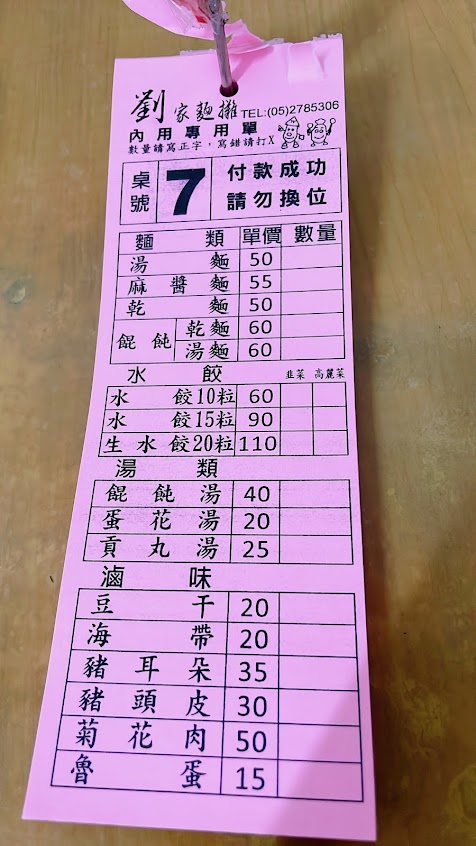 劉家麵攤 TEL:(05)2785306
內用專用單
數量請寫正字，寫錯請打X
桌號 7 付款成功 請勿換位
麵類 單價 數量
湯麵 50
麻醬麵 55
乾麵 50
餛飩 乾麵 60
湯麵 60
水餃 韭菜 高麗菜
水餃10粒 60
水餃15粒 90
生水餃20粒 110
湯類
餛飩湯 40
蛋花湯 20
貢丸湯 25
滷味
豆干 20
海帶 20
豬耳朵 35
豬頭皮 30
菊花肉 50
魯蛋 15